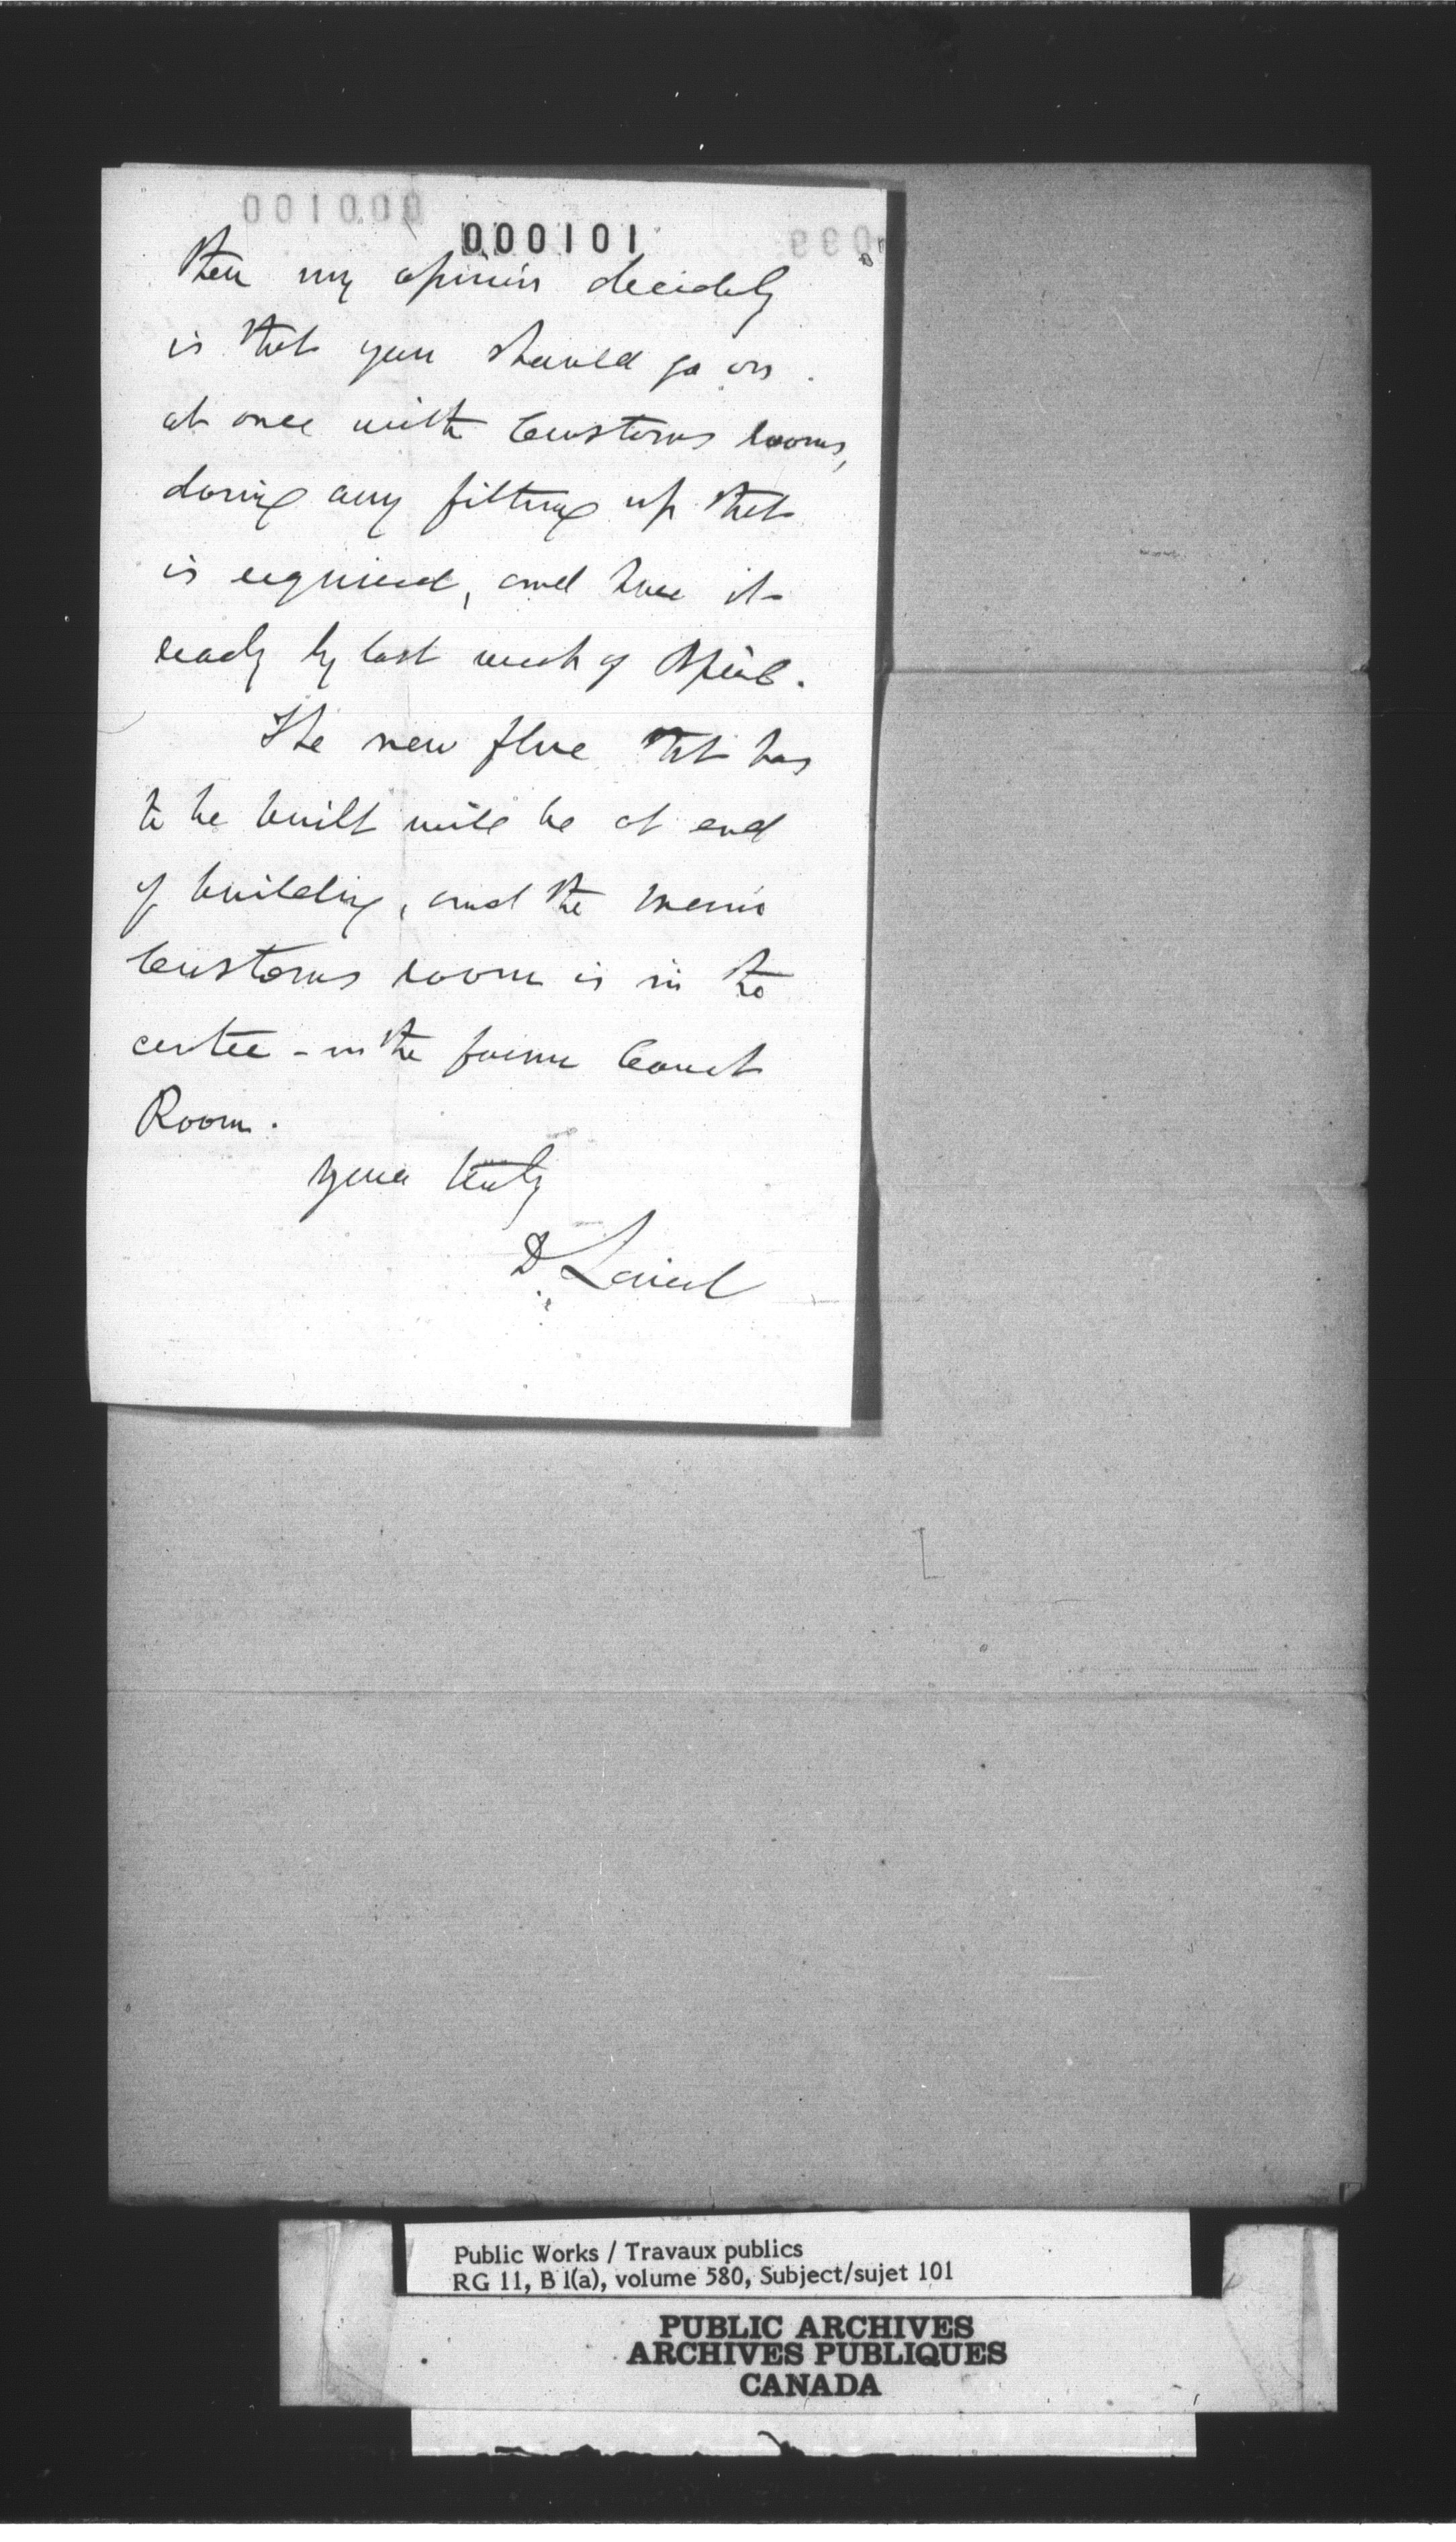 000101
Then my opinion decidedly
is that you should go on
at once with Customs rooms,
doing any fitting up that
is required, and have it
ready by last week of April.
The new flue that has
to be built will be at end
of building, and the main
Customs room is in the
centre - in the former Court
Room.
Yours truly
D. Laird
Public Works / Travaux publics
RG 11, B 1(a), volume 580, Subject/sujet 101
PUBLIC ARCHIVES
ARCHIVES PUBLIQUES
CANADA